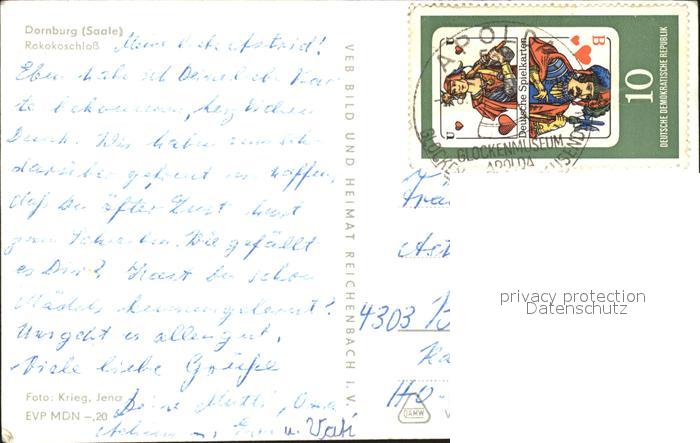 Dornburg (Saale)
Rokokoschloß
Meine liebe Astrid!
Eben habe ich Deine liebe Kar-
te bekommen, herzlichen
Dank. Wir haben uns sehr
darüber gefreut u. hoffen,
daß Du öfter Lust hast
zum Schreiben. Wie gefällt
es Dir? Hast Du schon
Mädels kennengelernt?
Uns geht es allen gut.
Viele liebe Grüße
Deine Mutti, Oma
u. Vati
Foto: Krieg, Jena
EVP MDN -,20
VEB BILD UND HEIMAT REICHENBACH I. V.
B
U
U
Deutsche Spielkarten
10
DEUTSCHE DEMOKRATISCHE REPUBLIK
GLOCKENMUSEUM
APOLDA
Ast
4303
HO-
DAMW
V
privacy protection
Datenschutz